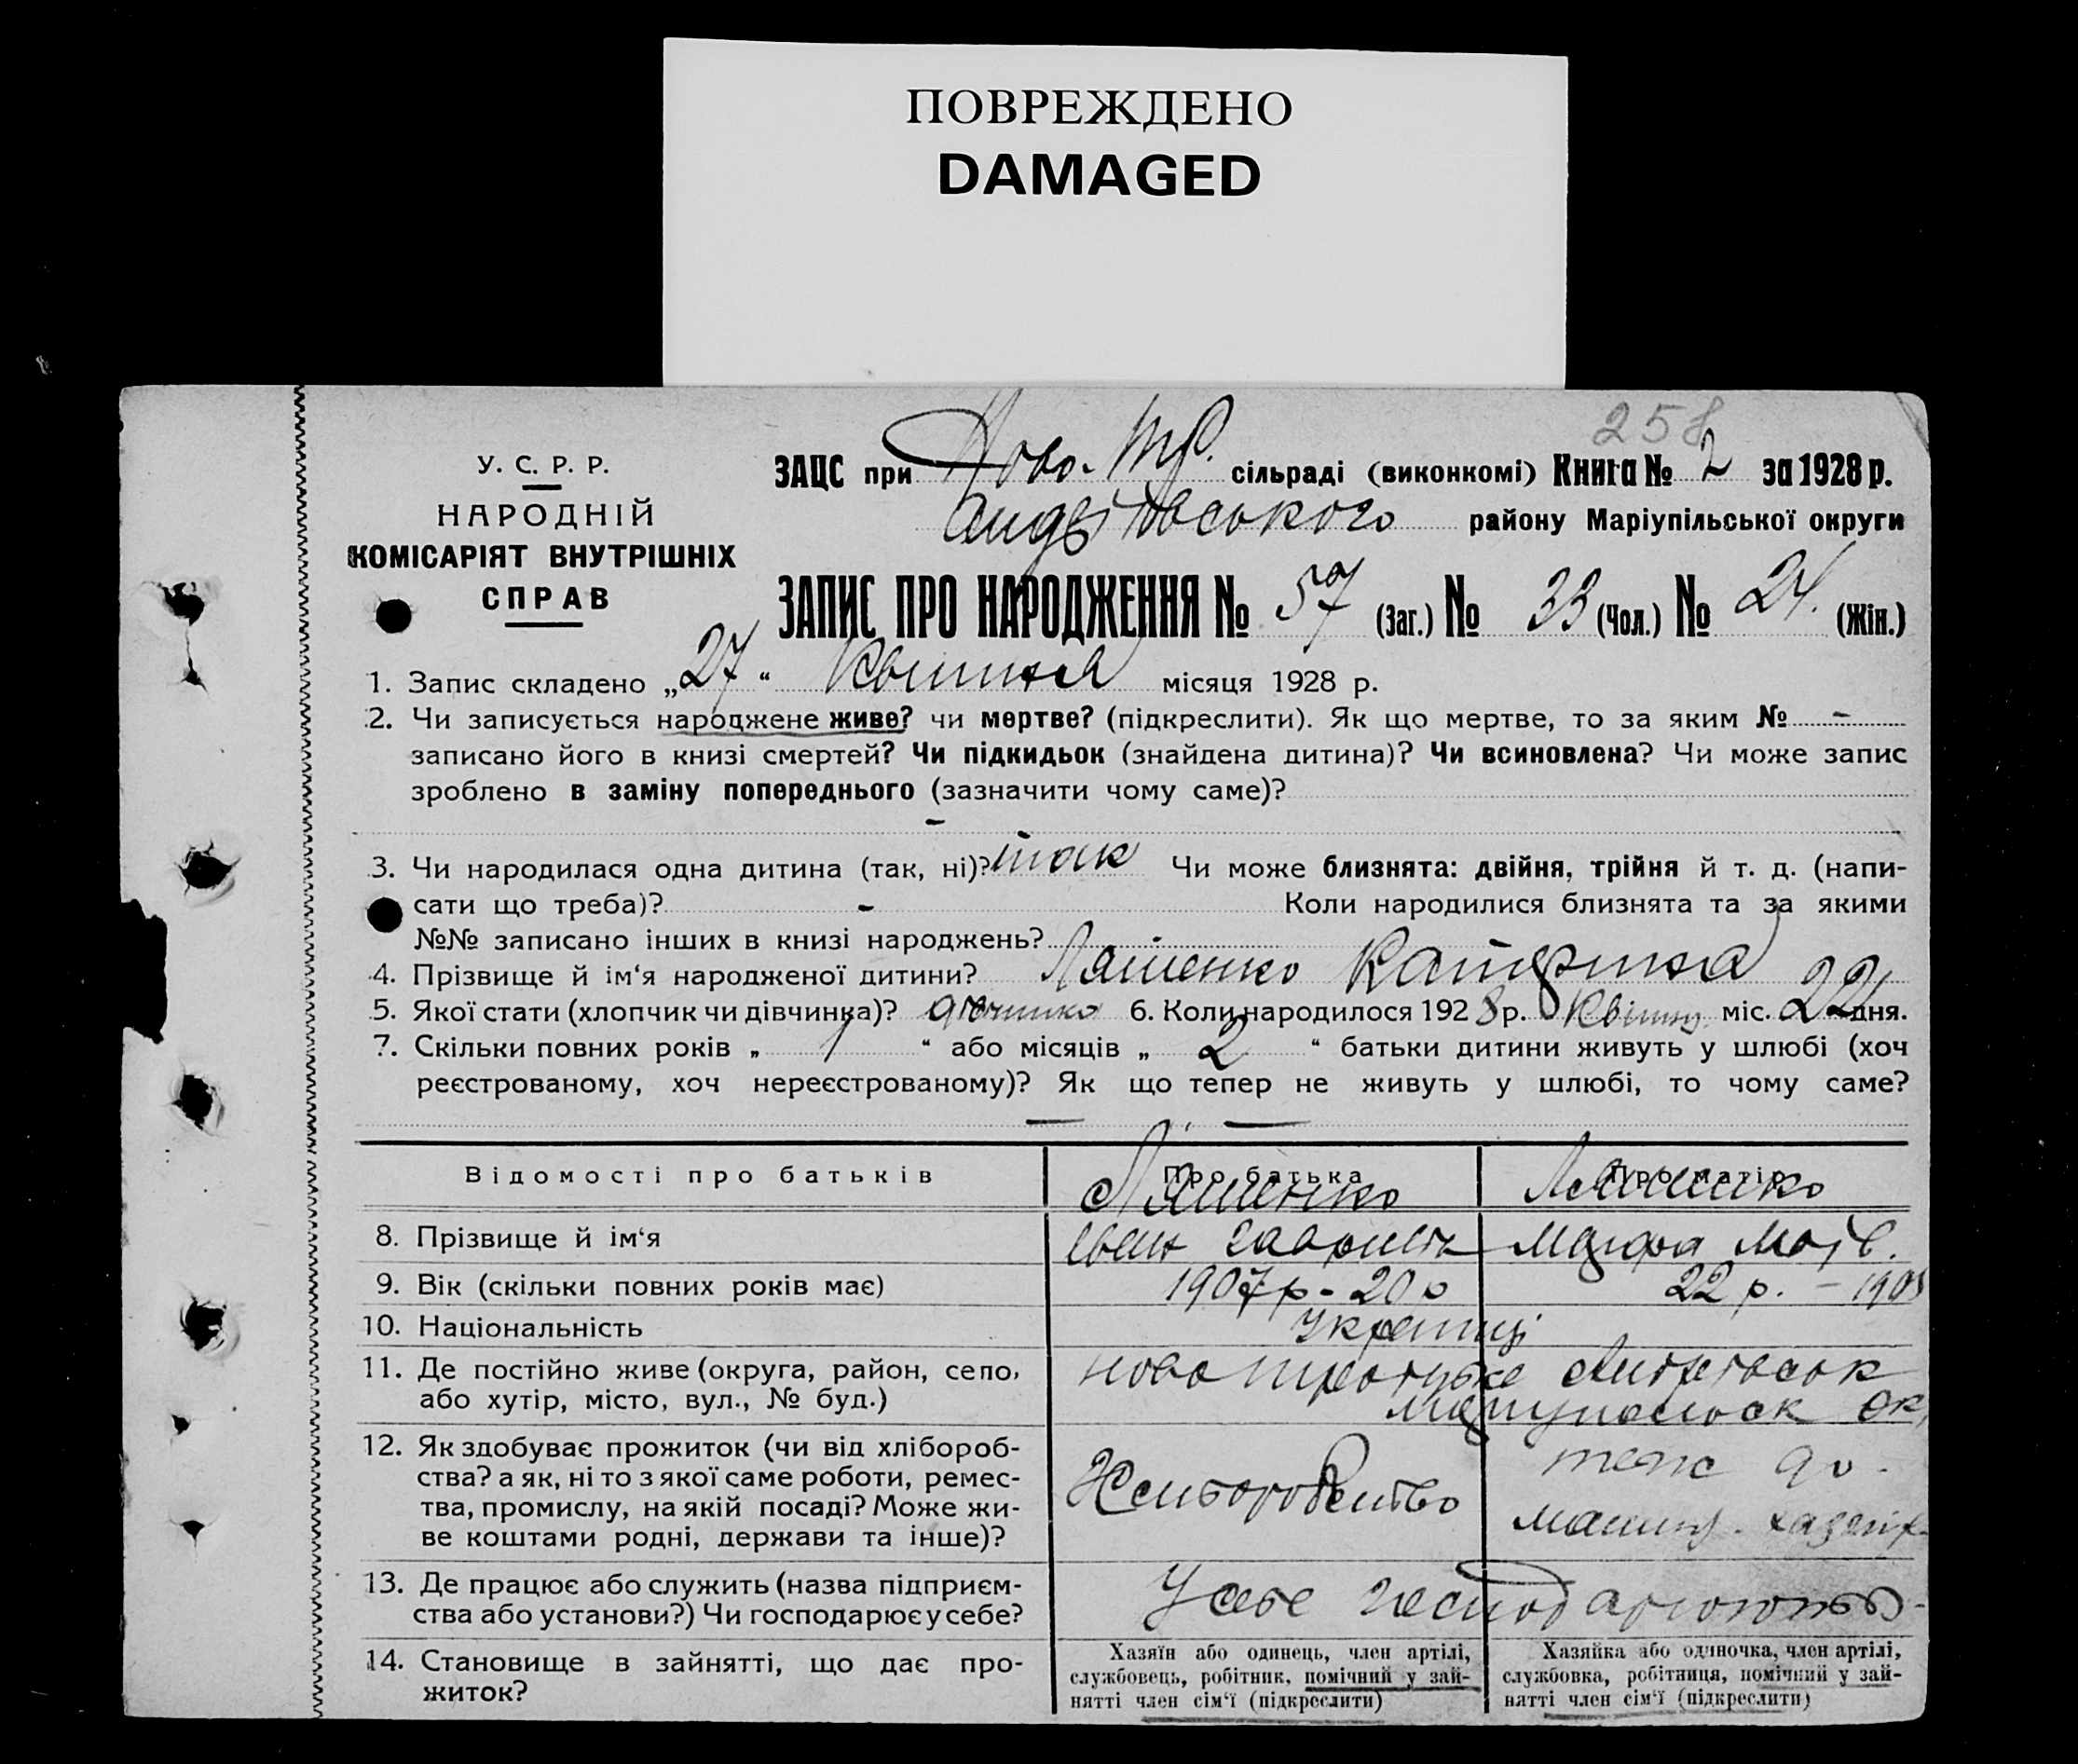 ПОВРЕЖДЕНО
DAMAGED
258
У. С. Р. Р.
НАРОДНІЙ
КОМІСАРІЯТ ВНУТРІШНІХ
СПРАВ
ЗАЦС при Ново-Тр. сільраді (виконкомі) Книга № 2 за 1928 р.
району Маріупільської округи
ЗАПИС ПРО НАРОДЖЕННЯ № 57 (Заг.) № 33 (Чол.) № 24. (Жін.)
1. Запис складено „27“ Квитня місяця 1928 р.
2. Чи записується народжене живе? чи мертве? (підкреслити). Як що мертве, то за яким № -
записано його в книзі смертей? Чи підкидьок (знайдена дитина)? Чи всиновлена? Чи може запис
зроблено в заміну попереднього (зазначити чому саме)?
-
3. Чи народилася одна дитина (так, ні)? так Чи може близнята: двійня, трійня й т. д. (напи-
сати що треба)? - Коли народилися близнята та за якими
№№ записано інших в книзі народжень? -
4. Прізвище й ім‘я народженої дитини? Ляшенко Катерина
5. Якої стати (хлопчик чи дівчинка)? дівчинка 6. Коли народилося 1928 р. Квітня міс. 22 дня.
7. Скільки повних років „ 1 “ або місяців „ 2 “ батьки дитини живуть у шлюбі (хоч
реєстрованому, хоч нереєстрованому)? Як що тепер не живуть у шлюбі, то чому саме?
— —
Відомості про батьків Про батька Про матір
Ляшенко Ляшенко
8. Прізвище й ім‘я Іван Марфа
9. Вік (скільки повних років має) 1907 р - 20 р 22 р. - 190
10. Національність Українці
11. Де постійно живе (округа, район, село,
або хутір, місто, вул., № буд.)
12. Як здобуває прожиток (чи від хлібороб-
ства? а як, ні то з якої саме роботи, ремес-
тва, промислу, на якій посаді? Може жи-
ве коштами родні, держави та інше)?
Хліборобство
теж до-
машн. хазяйк
13. Де працює або служить (назва підприєм-
ства або установи?) Чи господарює у себе?
У себе господарюють
14. Становище в зайнятті, що дає про-
житок?
Хазяїн або одинець, член артілі,
службовець, робітник, помічний у зай-
нятті член сім‘ї (підкреслити)
Хазяйка або одиночка, член артілі,
службовка, робітниця, помічний у зай-
нятті член сім‘ї (підкреслити)